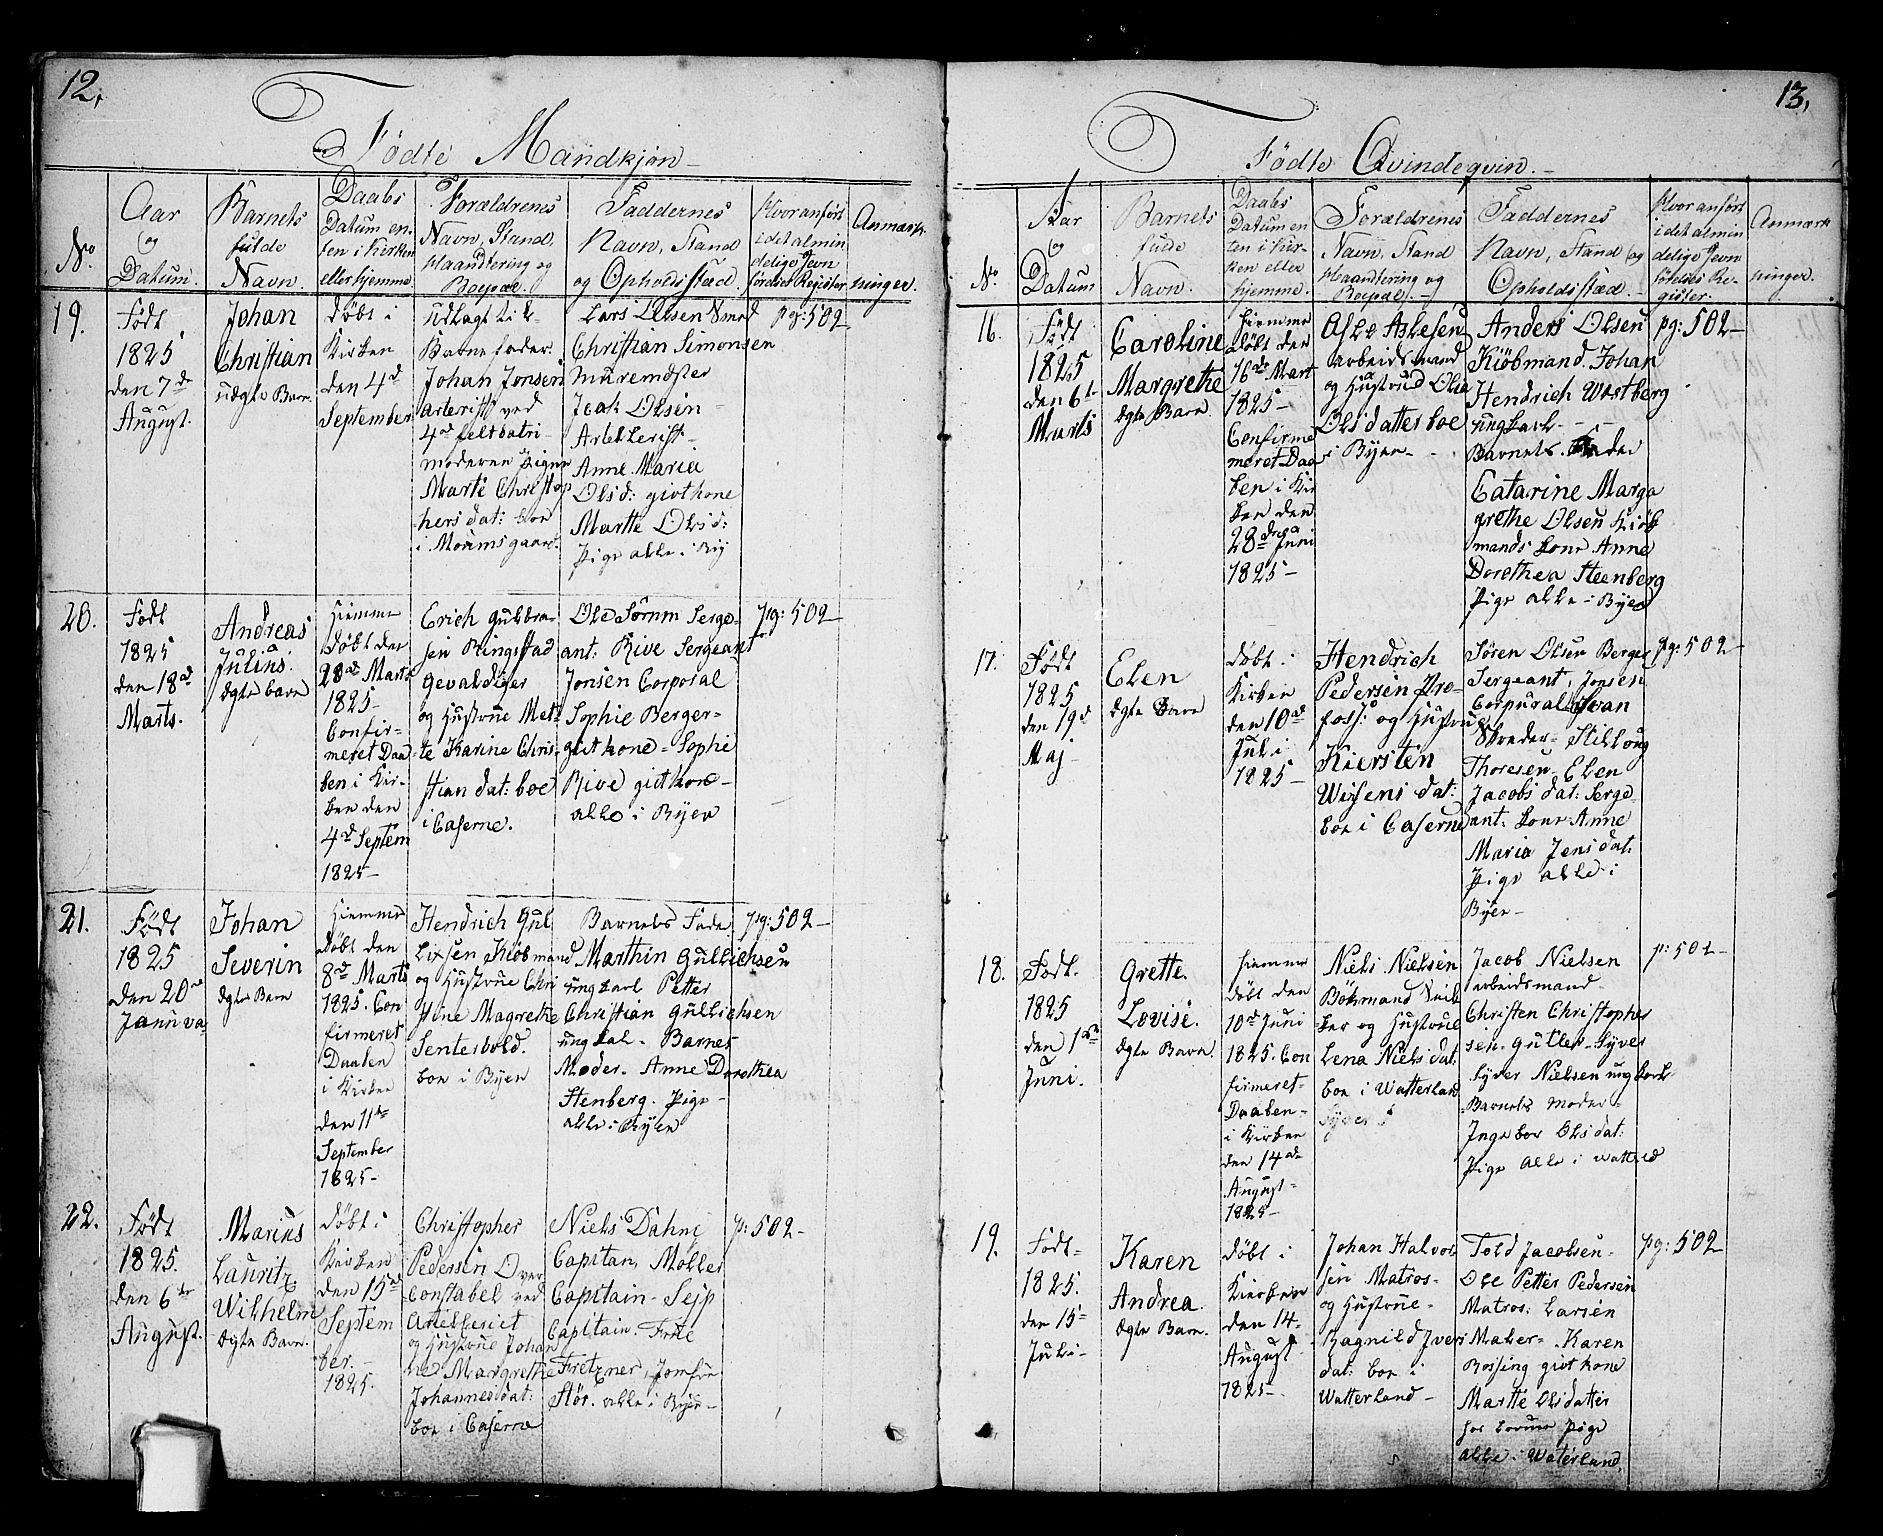 12.
Fødte Mandkjøn
No
Aar
og
Datum.
Barnets
fulde
Navn.
Daabs
Datum en-
ten i Kirken
eller hjemme.
Forældrenes
Navn, Stand,
Haandtering og
Boepæl.
Faddernes
Navn, Stand
og Opholdssted.
Hvor anført
i det almin
delige Jevn
førelses Register
Anmærk
ninger.
19.
Født
1825
den 7de
August.
Johan
Christian
uægte Barn.
døbt i
Kirken
den 4d
September
udlagt til
Barnefader:
Johan Jonsen
Arterist ved
4d feltbatri-
moderen Pigen
Marte Christop
hers dat: boe
i Mommsgaard.
Lars Olsen Smed
Christian Simonsen
muremæster
Jcok Olsen
Artellerist
Anne Maria
Olsd: givt kone
Martte Olsd:
Pige alle i By
pg: 502
20.
Født
1825
den 18d
Marts.
Andreas
Julius.
ægte barn
hiemme
døbt den
28d Marts
1825
Confir-
meret Daa
ben i Kir-
ken den
4d Septem
1825
Erich Gulbra-
sen Ringstad
Gevaldiger
og Hustrue Met
te Karine Chris-
tian dat: boe
i Caserne.
Ole Sørnm Serge-
ant: Rive Sergeant
Jonsen Corporal
Sophie Berger-
givt kone - Sophie
Rive givt kone
alle i Byen
pg: 502
21.
Født
1825
den 20de
Januva
Johan
Severin
ægte Barn
hiemme
døbt den
8d Marts
1825. Con
firmeret
Daaben
i Kirken
den 11te
September
1825
Hendrich Gul
lixsen Kiøbmand
og Hustrue Chri
stine Magrethe
Senterbold.
boe i Byen
Barnets Fader
Marthin Gullichsen
ungkarl Petter
Christian Gullichsen
ungkal. Barnes
Moder. Anne Dorothea
Stenberg. Pige
alle i Byen
pg: 502
22.
Født
1825.
den 6te
August.
Marius
Lauritz
Wilhelm
ægte Barn.
døbt i
Kirken
den 15de
Septem
ber.
1825.
Christopher
Pedersen Over
Constabel ved
Arteleriet
og Hustrue Johan
ne Margrethe
Johannesdat:
boe i Caserne
Niels Dahne
Capitan, Møller
Capitain - Sejp
Capitain. Frue
Fretzner, Jomfru
Stör. alle i Byen
p: 502
13.
Fødte Qvindeqvin.
No
Aar
og
Datum
Barnets
fulde
Navn.
Daabs
Datum en
ten i Kir-
ken eller
hjemme.
Forældrenes
Navn, Stand
Haandtering og
Boepæl.
Faddernes
Navn, Stand og
Opholdssted.
Hvor anført
i det almin
delige Jevn
førelses Re-
gister.
Anmærk
ninger.
16.
Født
1825
den 6te
Marts
Caroline
Margrethe
ægte Barn.
hiemme
døbt den
16de Mart
1825
Confirme
meret Daa
ben i Kir
ken den
28de Juni
1825
Asle Aslesen
arbeidsmand
og Hustrud Olea
Olsdatter boe
i Byen
Anders Olsen
Kiöbmand. Johan
Hendrich Wastberg
ungkarl
Barnets Fader
Catarine Marga
grethe Olsen Kiöb
mands kone Anne
Dorethea Steenberg
Pige alle i Byen
pg: 502
17.
Født
1825
den 19d
Maj
Elen
ægte Barn
døbt i
Kirken
den 10de
Juli
1825
Hendrich
Pedersen Pro-
foss: og Hustrue
Kiersten
Weisens dat:
boe i Caserne
Søren Olsen Berger
Sergeant, Jonsen
Corpural Svan
Thoresen. Elen
Jacobs dat: Serge
ant: kone Anne
Maria Jens dat:
Pige alle i
Byen
pg: 502
18.
Født.
1825
den 1ste
Juni.
Grette.
Lovise.
ægte Barn.
hiemme
døbt den
10d Juni
1825. Con
firmeret
Daaben
i Kirken
den 14de
August
1825
Niels Nielsen
og Hustrue
Lena Niels dat:
boe i Watterland
Jacob Nielsen
arbeidsmand
Christen Christopher
sen. Gutler. Syver
Syver Nielsen ungkarl
Barnets Moder
Ingebor Ols dat:
Pige alle i Watteld
p: 502
19.
Født
1825.
den 15
Juli
Karen
Andrea.
ægte Barn.
døbt i
Kirken
den 14.
August
1825
Johan Halvor
sen Matros
og Hustrue
Ragnild Iver
dat: boe i
Watterland
Told Jacobsen
Ole Petter Pedersen
Matros. Larsen
Maler. Karen
Rossing givt kone
Martte Olsdatter
Pige
alle i Waterland.
pg: 502